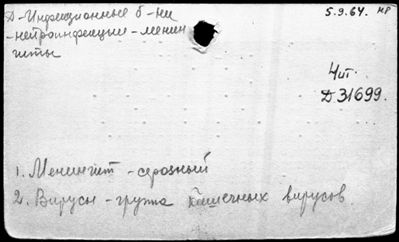 Д-Инфекционные б-ни
-нейроинфекции-менин
гиты
5.9.64. мр
Чит.
Д31699.
1. Менингит - серозный
2. Вирусы - группа кишечных вирусов